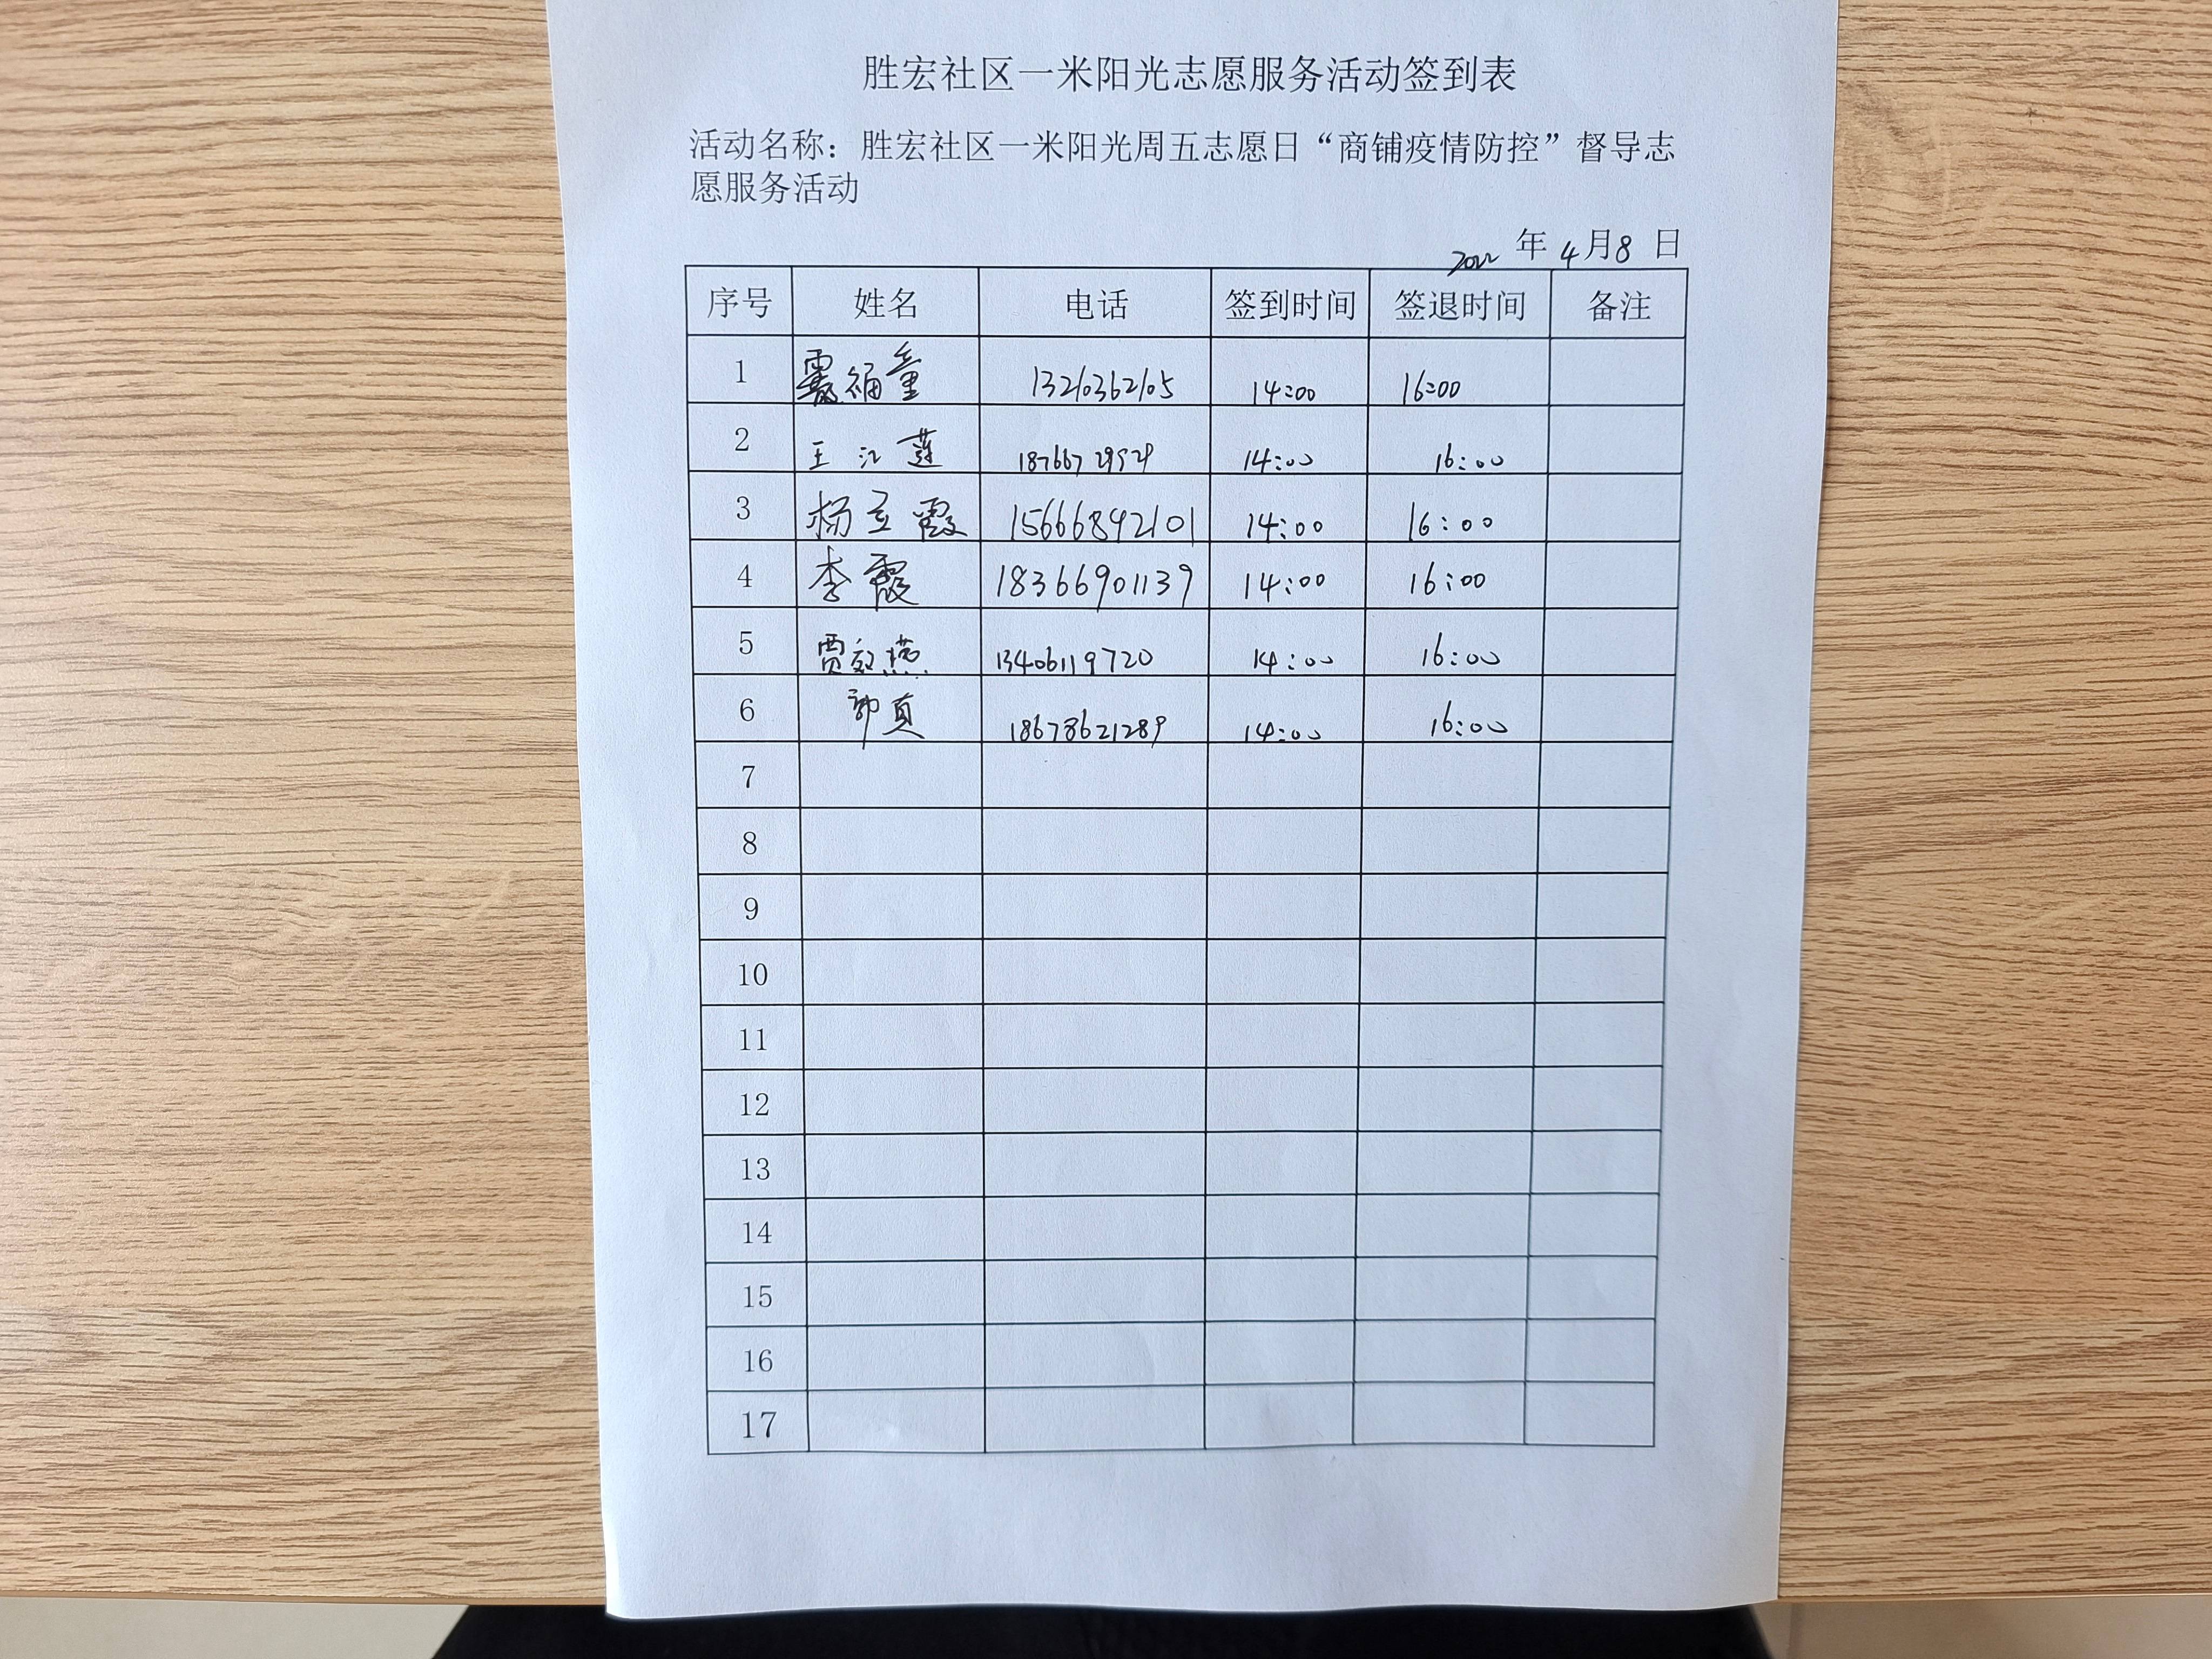 胜宏社区一米阳光志愿服务活动签到表
活动名称：胜宏社区一米阳光周五志愿日“商铺疫情防控”督导志
愿服务活动
2022 年 4 月 8 日
序号 姓名 电话 签到时间 签退时间 备注
1 福童 13210362105 14:00 16:00
2 王江莲 14:00 16:00
3 杨立霞 15666892101 14:00 16:00
4 李霞 18366901139 14:00 16:00
5 贾效燕 13406119720 14:00 16:00
6 郭真 18678621289 14:00 16:00
7
8
9
10
11
12
13
14
15
16
17